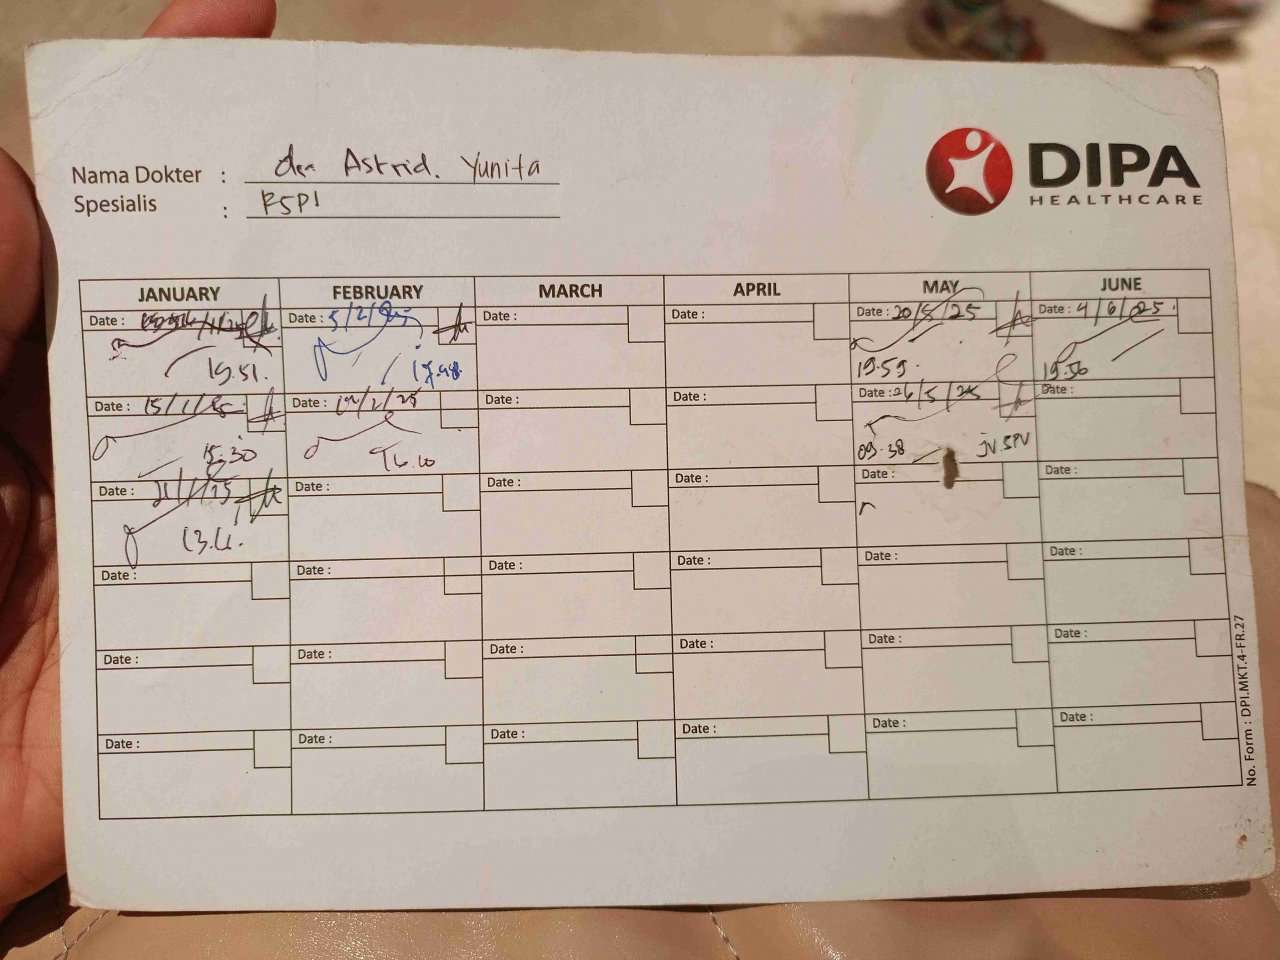 DIPA
HEALTHCARE
Nama Dokter : dr Astrid. Yunita
Spesialis : RSPI
JANUARY FEBRUARY MARCH APRIL MAY JUNE
Date : Date : 5/2/25 Date : Date : Date : 20/5/25 Date : 4/6/25.
19.51. 19.59. 19.56
Date : 15/1/25 Date : Date : Date : Date : 26/5/25 Date :
15.30 16.10 09.38 JV SPV
Date : 21/1/25 Date : Date : Date : Date : Date :
Date : Date : Date : Date : Date : Date :
Date : Date : Date : Date : Date : Date :
Date : Date : Date : Date : Date : Date :
No. Form : DPI.MKT.4-FR.27